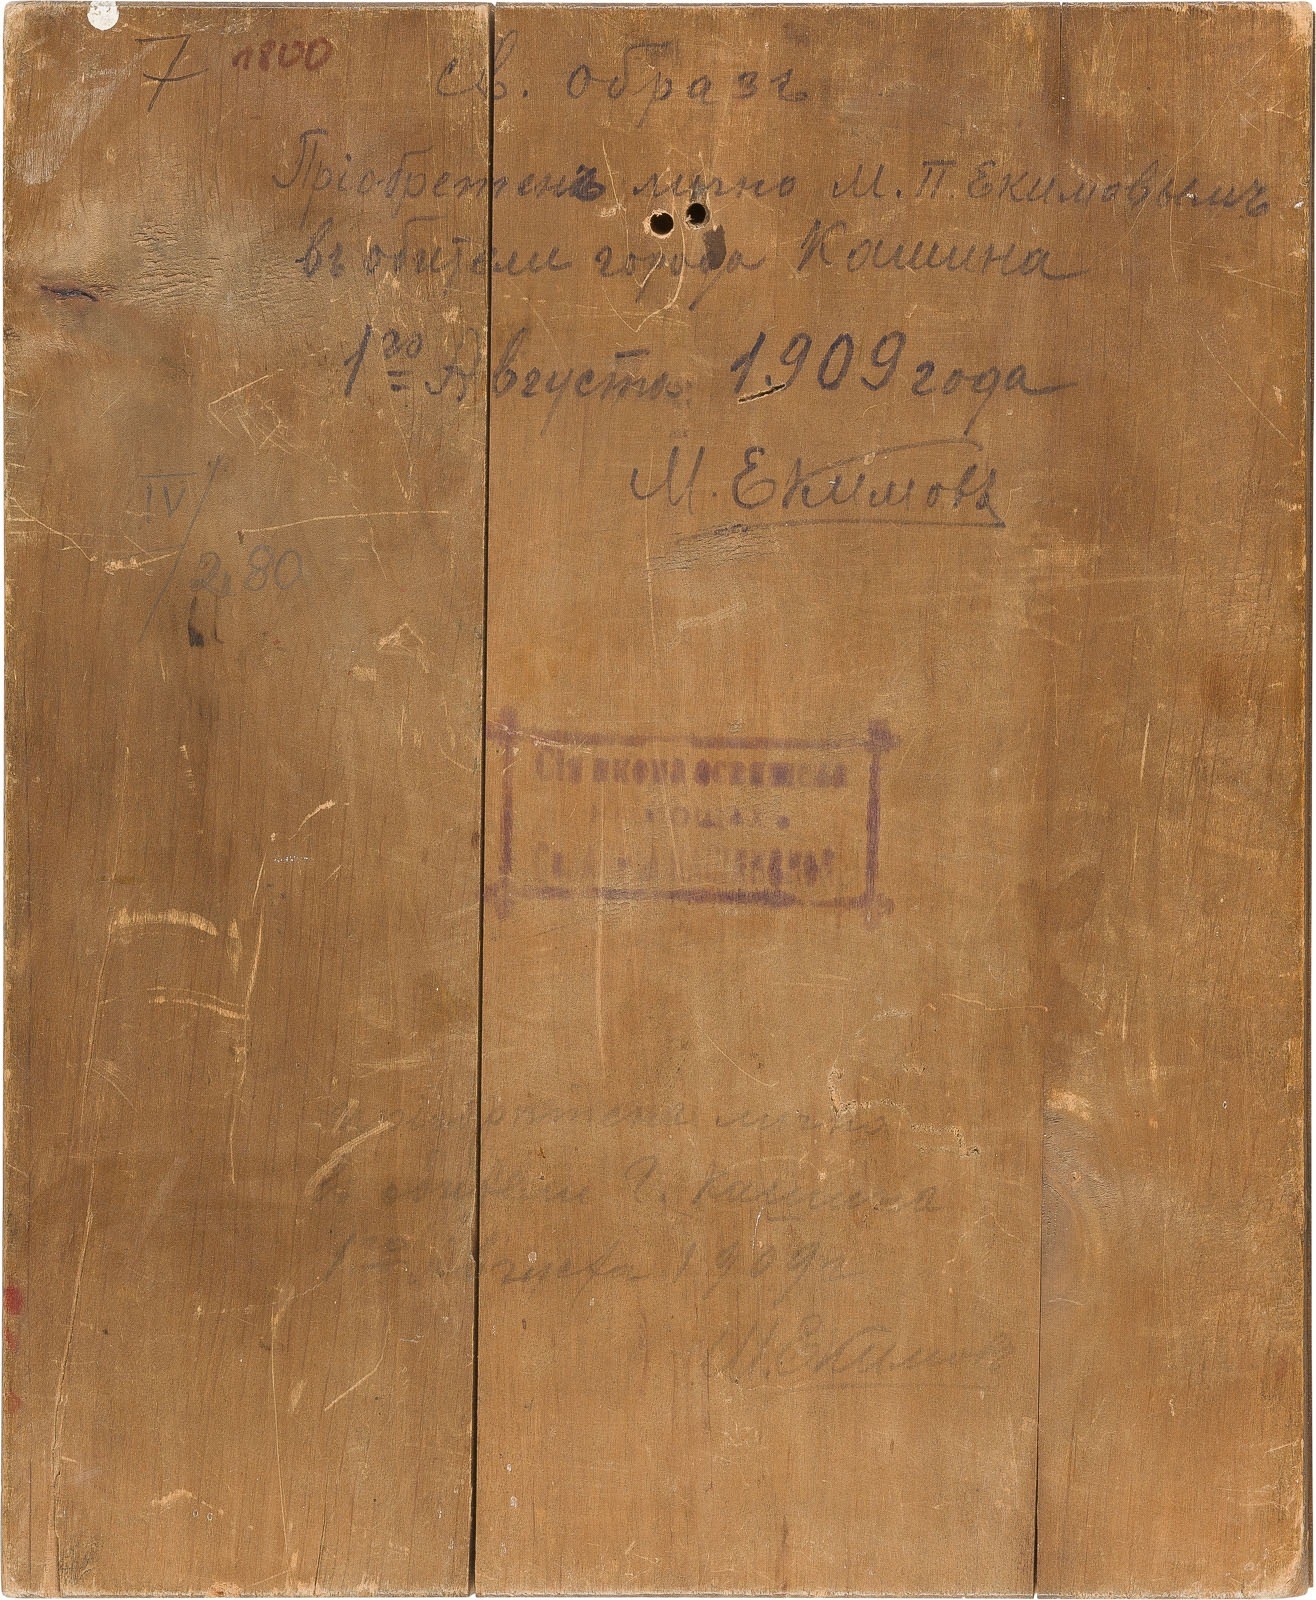 7 1800 св. образъ
Пріобретенъ лично М. П. Екимовымъ
въ обители города Кашина
1го Августа 1909 года
М. Екимовъ
IV/2,80
Сія икона освящена
на мощахъ
лично
въ обители г. Кашина
1го Августа 1909 г.
М. Екимовъ